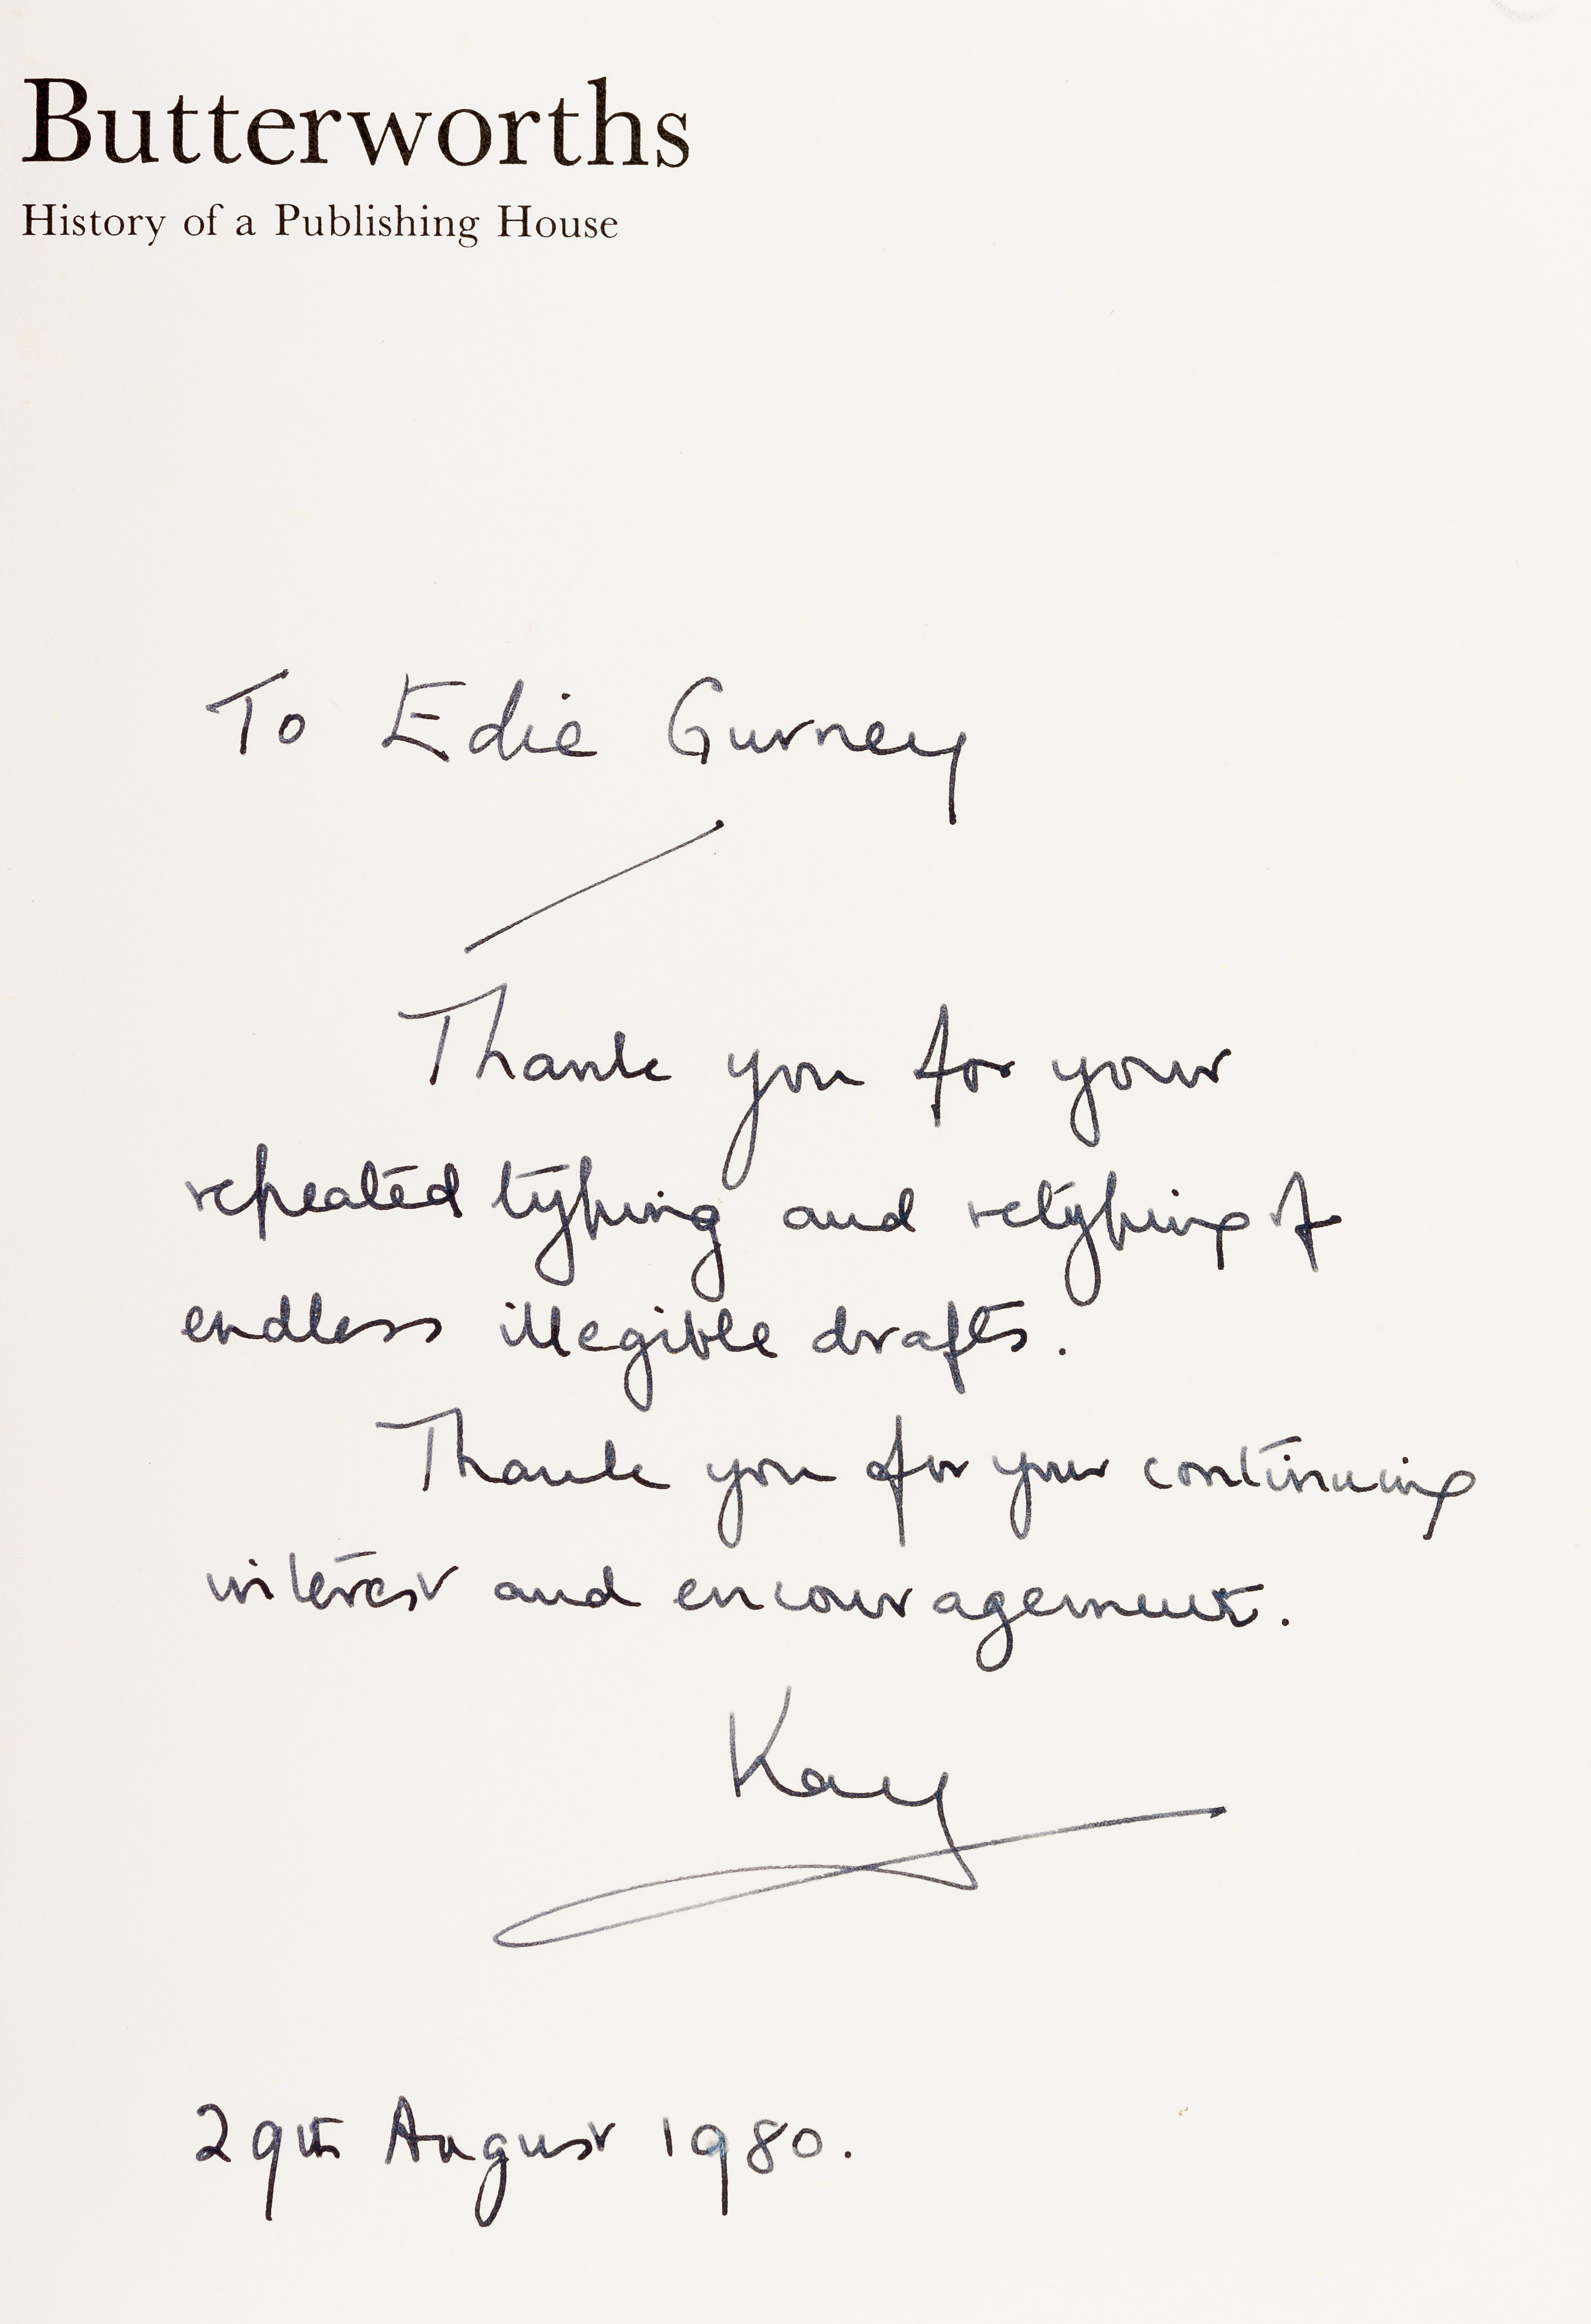 Butterworths
History of a Publishing House
To Edie Gurney
Thank you for your
repeated typing and retyping of
endless illegible drafts.
Thank you for your continuing
interest and encouragement.
Kay
29th August 1980.